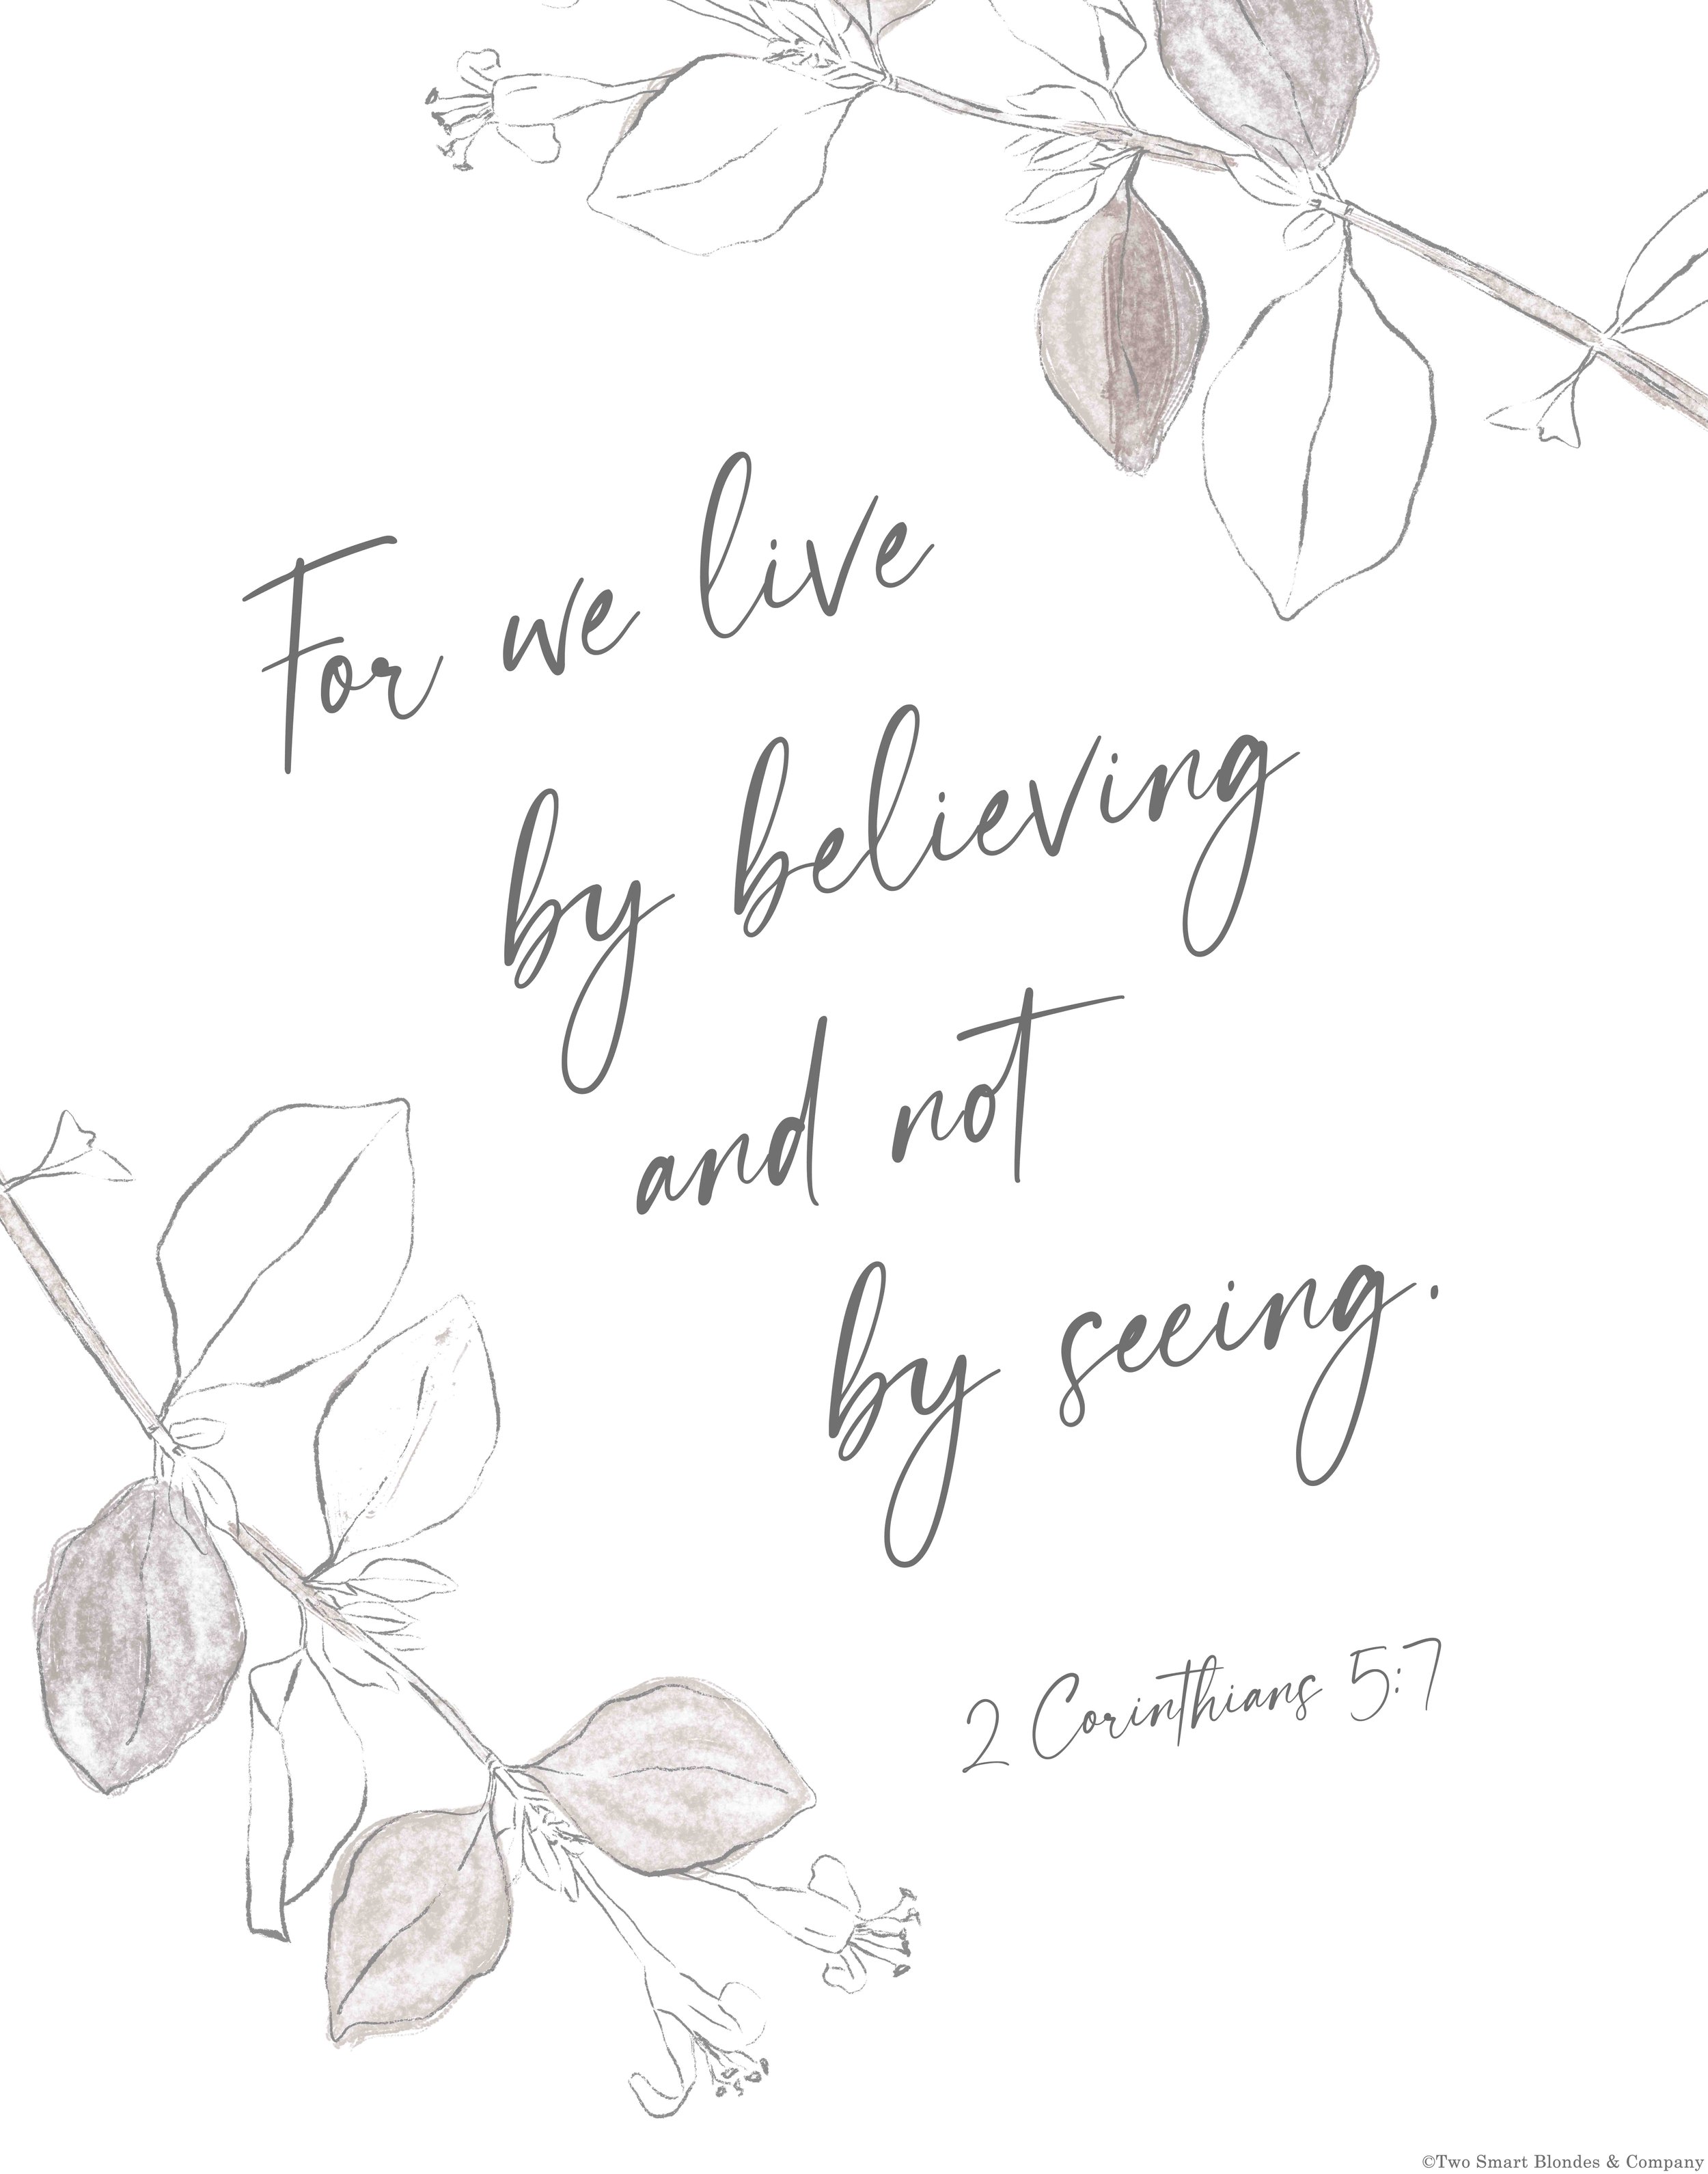 For we live
by believing
and not
by seeing.
2 Corinthians 5:7
©Two Smart Blondes & Company